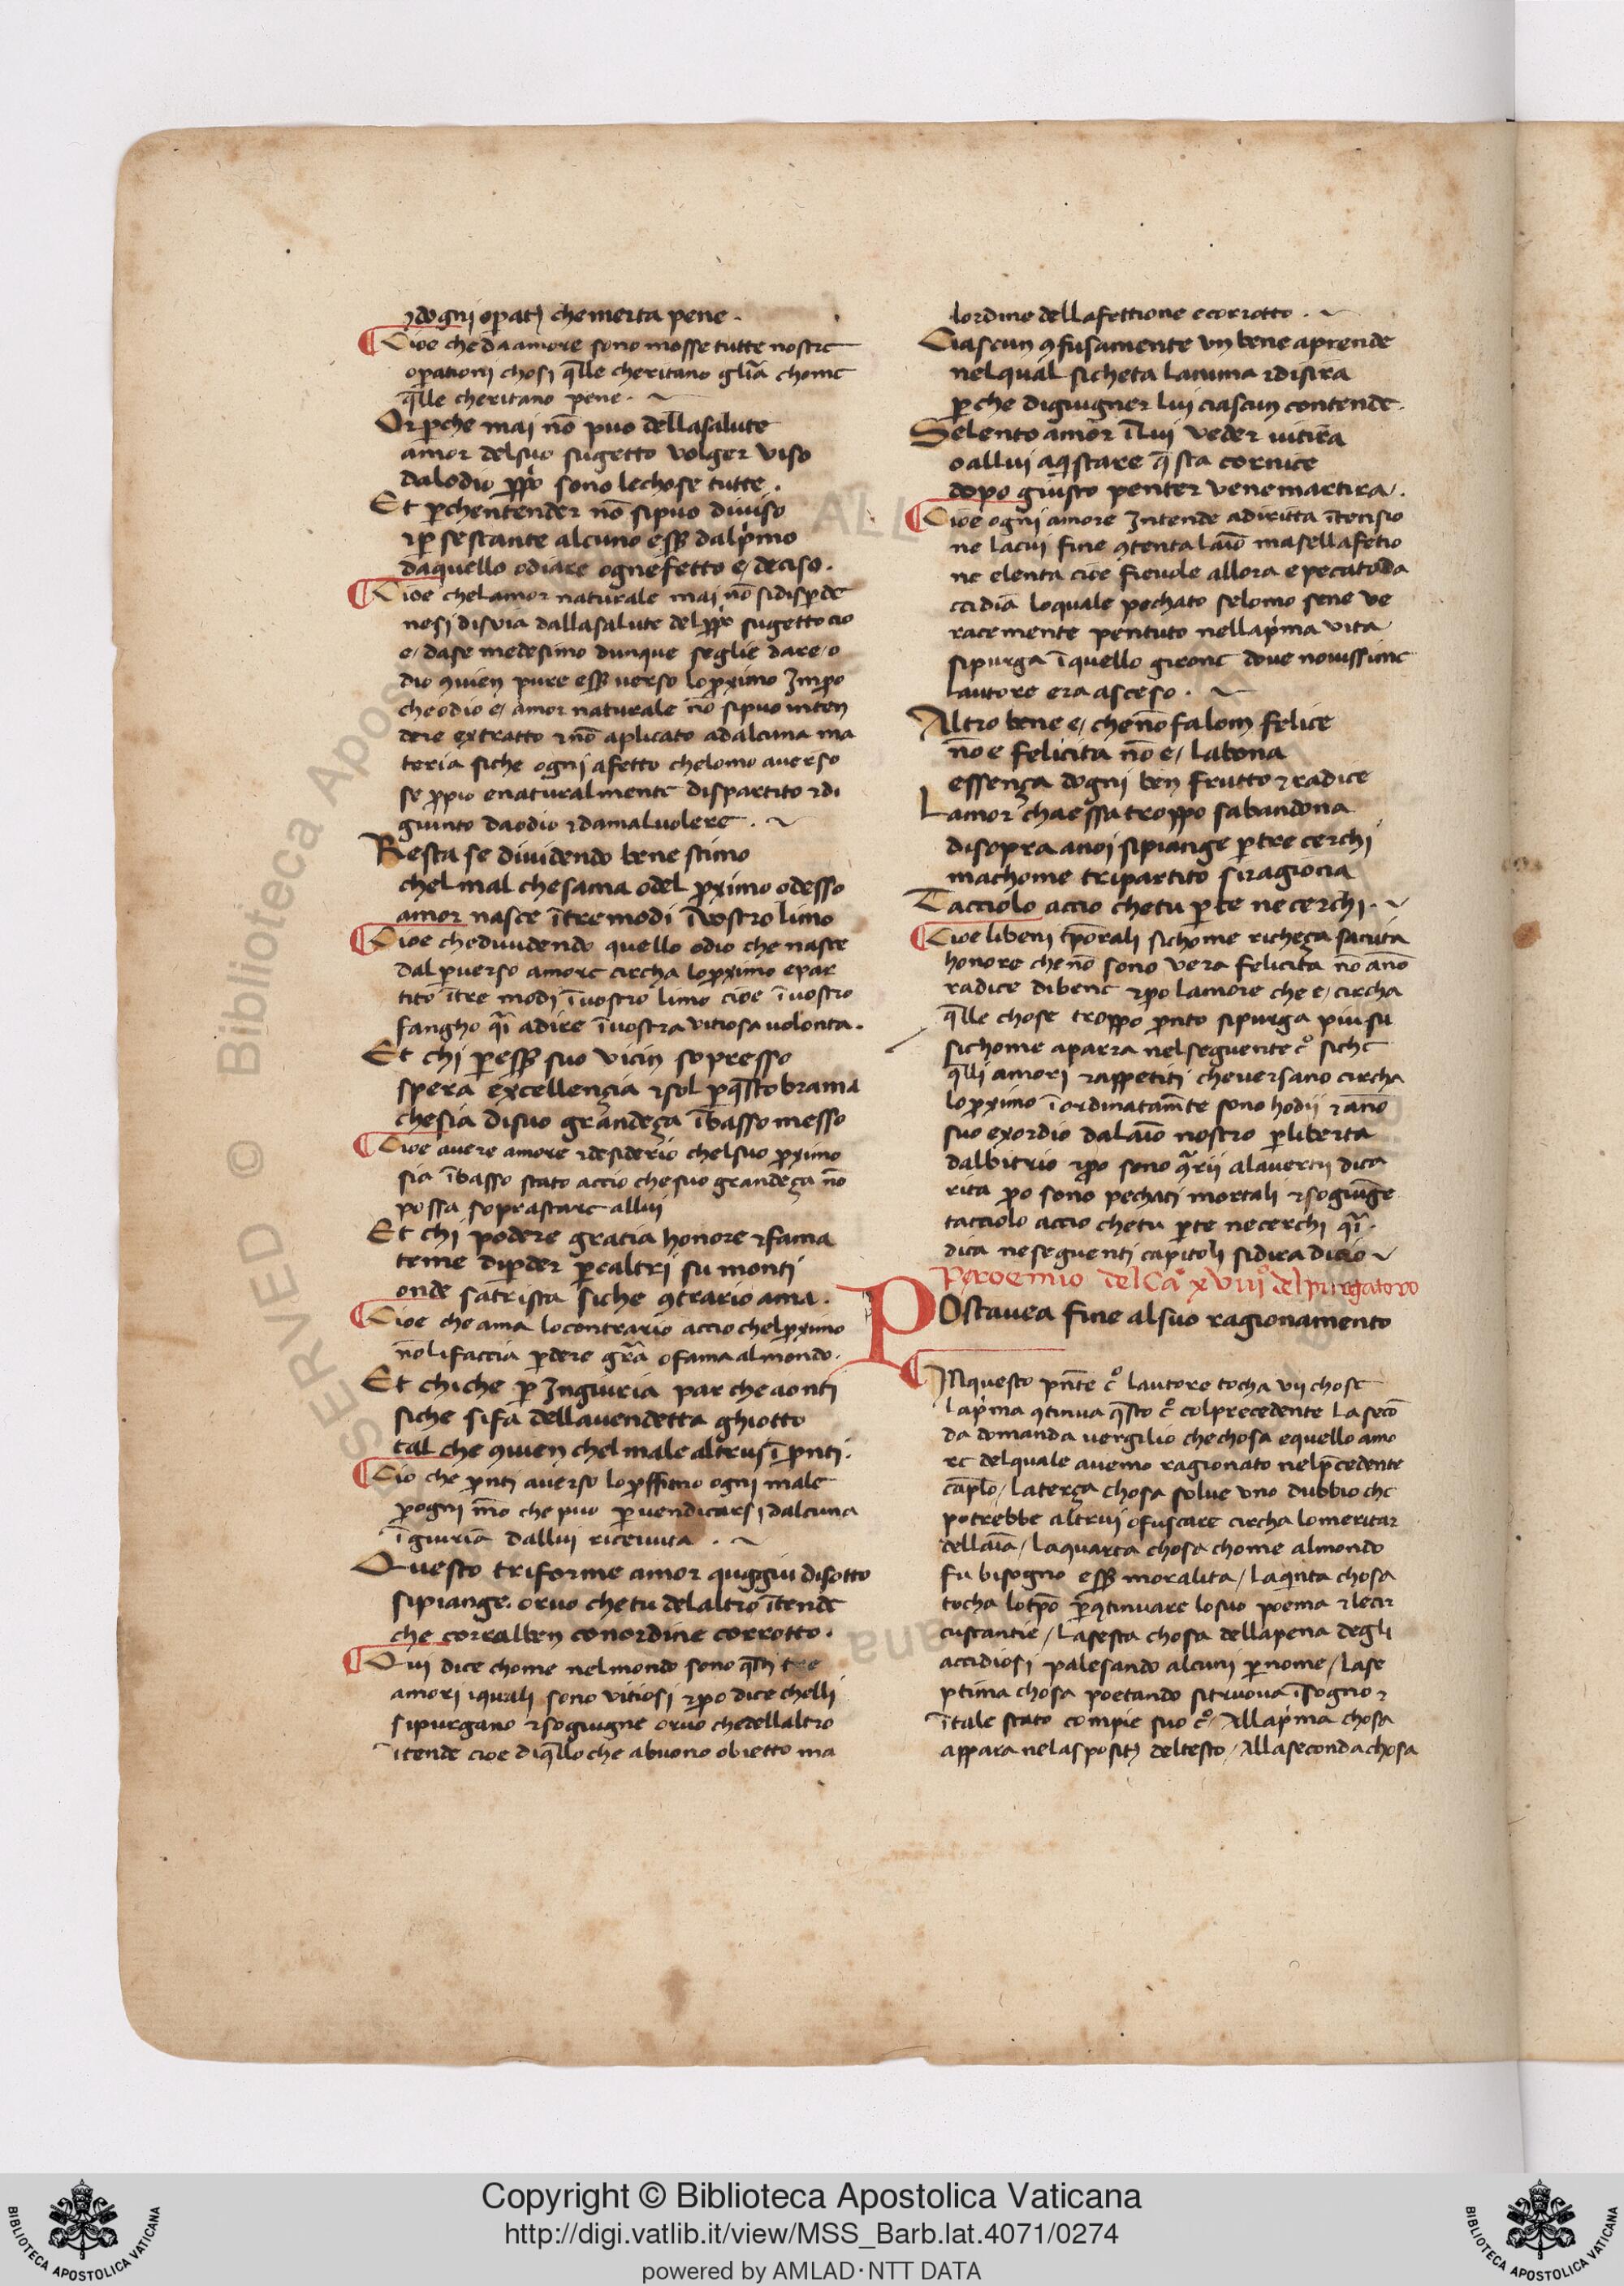 ⁊dogni op̄atỹ chemerta pene .
Cioe che da amore sono mosse tutte nostre
op̄ationi chosi q̄lle cheritano gl̄ia chome
q̄lle cheritano pene .
Or p̱che mai nō puo dellasalute
amor delsuo sugetto volger viso
dalodio p̱p̱o sono lechose tutte .
Et p̱chentender nō sipuo diuiso
⁊p̱ sestante alcuno ess̄ dalp̄mo
daquello odiare ognefetto e / deciso .
Cioe chelamor naturale mai nō sidisp̱de
nesi disvia dallasalute delp̱p̱o sugetto cio
e / dase medesimo dunque seglie dare / o
dio ꝯuien pure ess̄ uerso lop̱ximo Imp̱o
cheodio e / amor naturale nō sipuo inten
dere extratto ⁊ nō aplicato adalcuna ma
teria siche ogni afetto chelomo auerso
se p̱pio enaturalmente dispartito ⁊di
giunto daodio ⁊damaluolere .
Resta se diuidendo bene stimo
chelmal chesama odel p̱ximo odesso
amor nasce ītremodi īvostro limo
Cioe cheduudendo quello odio che nasce
dal p̱uerso amore circha lop̱ximo epar
tito ītre modi īuostro limo cioe īuostro
fangho q̄i adire īuostra vitiosa uolonta .
Et chi p̱ess̄ suo vicin sopresso
spera excellençia ⁊sol p̱q̄sto brama
chesia disuo grandeça ībasso messo
Cioe auere amore ⁊desiderio chelsuo p̱ximo
sia ībasso stato accio chesuo grandeça nō
possa soprastare allui
Et chi podere gratia honore ⁊fama
teme dip̱der p̱caltri su monti
onde satrista siche ꝯtrario ama .
Cioe che ama locontrario accio chelp̱ximo
nōlifaccia p̱dere gr̄a ofama almondo .
Et chiche p̱ Ingiuria par che aonti
siche sifa dellauendetta ghiotto
tal che ꝯuien chelmale altrusī p̱nti .
Cio che p̱nti auerso lop̱ssimo ogni male
p̱ogni mō che puo p̱uendicarsi dalcuna
īgiuria dallui riceuuta .
Questo triforme amor quggiu disotto
sipiange . oruo chetu delaltro ītende
che corralben conordine corrotto .
Qui dice chome nelmondo sono q̄sti tre
amori iquali sono vitiosi ⁊p̱o dice chelli
sipurgano ⁊sogiugne oruo chedellaltro
ītende cioe diq̄llo che abuono obietto ma
lordine dellafettione ecorrotto .
Ciascun ꝯfusamente vn bene aprende
nelqual sicheta lanima ⁊disira
p̱che digiugner lui ciascun contende .
Selento amor īlui veder uitira
oallui aq̄stare q̄sta cornice
dopo giusto penter venemartira .
Cioe ogni amore Intende adiritta ītensio
ne lacui fine ꝯtenta laīo masellafetio
ne elenta cioe fieuole allora epecatoda
ccidia loquale pechato selomo sene ve
racemente pentuto nellap̄ma vita
sipurga īquello girone doue nouissime
lautore era asceso .
Altro bene e / chenō falom felice
nō e felicita nō e / labona
essença dogni ben frutto ⁊ radice
Lamor chaessa troppo sabandona
disopra anoi sipiange p̱tre cerchi
machome tripartito siragiona
Tacciolo accio chetu p̱te necerchi .
Cioe libeni tp̄orali sichome richeça sanita
honore chenō sono vera felicita nō anō
radice dibene ⁊p̱o lamore che e / circha
q̄lle chose troppo p̱nto sipurga piusu
sichome aparra nelseguente c̊ siche
q̄lli amori ⁊appetiti cheuersano circha
lop̱ximo īordinatamēte sono hodii ⁊ anō
suo exordio dalaīo nostro p̱liberta
dalbitrio ⁊p̱o sono ꝯ̄rii alauertu dica
rita p̱o sono pechati mortali ⁊sogiugne
tacciolo accio chetu p̱te necerchi q̄i
dica neseguenti capitoli sidira dicio
Peroemio delCā xviiį̊ delpurgatoro
POstauea fine alsuo ragionamento
INquesto p̄nte c̊ lautore tocha vii chose
lap̄ma ꝯtinua q̄sto c̊ colprecedente Lasecō
da domanda uergilio chechosa equello amo
re delquale auemo ragionato nelp̄cedente
cap̄lo / laterça chosa solue vno dubbio che
potrebbe altrui ofuscare circha lomeritar
dellaīa / laquarta chosa chome almondo
fu bisogno ess̄ moralita / laq̄nta chosa
tocha lotp̄o p̱ꝯtinuare losuo poema ⁊lecir
custantie / lasesta chosa dellapena degli
accidiosi palesando alcuni p̱nome / lase
ptima chosa poetando sitruoua īsogno ⁊
ītale stato compie suo c̊ / Allap̄ma chosa
appara nelasposiṭỹ deltesto / Allasecondachosa
Copyright © Biblioteca Apostolica Vaticana
http://digi.vatlib.it/view/MSS_Barb.lat.4071/0274
powered by AMLAD·NTT DATA